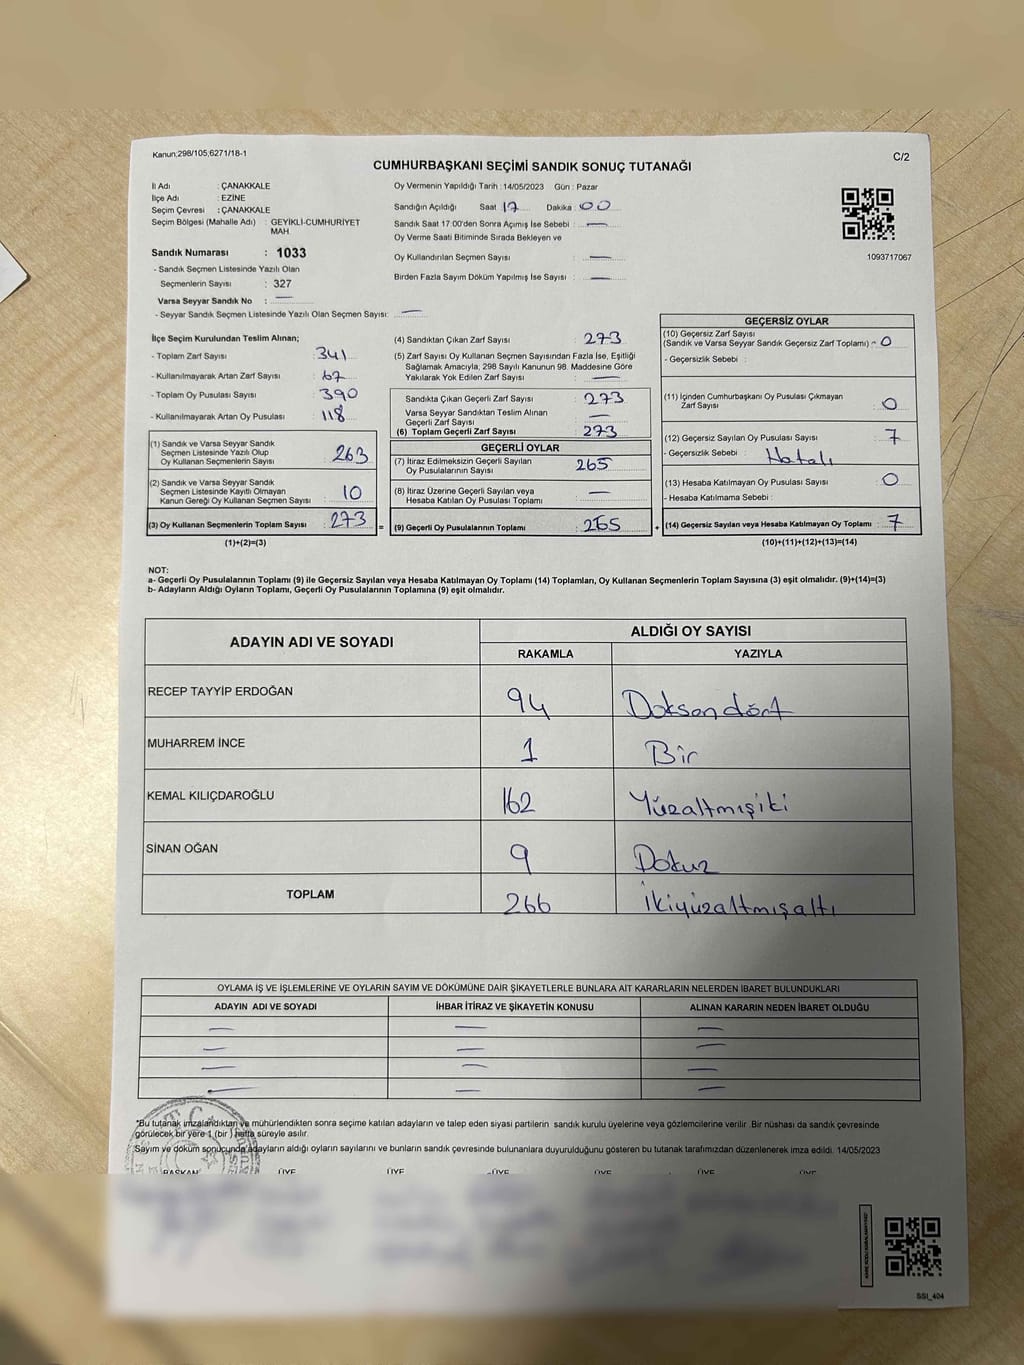 Kanun;298/105;6271/18-1
C/2
CUMHURBAŞKANI SEÇİMİ SANDIK SONUÇ TUTANAĞI
İl Adı : ÇANAKKALE
İlçe Adı : EZİNE
Seçim Çevresi : ÇANAKKALE
Seçim Bölgesi (Mahalle Adı) : GEYİKLİ-CUMHURİYET
MAH.
Sandık Numarası : 1033
- Sandık Seçmen Listesinde Yazılı Olan
Seçmenlerin Sayısı : 327
Varsa Seyyar Sandık No : —
- Seyyar Sandık Seçmen Listesinde Yazılı Olan Seçmen Sayısı: —
Oy Vermenin Yapıldığı Tarih : 14/05/2023 Gün : Pazar
Sandığın Açıldığı Saat 17 Dakika 00
Sandık Saat 17.00'den Sonra Açımış İse Sebebi : —
Oy Verme Saati Bitiminde Sırada Bekleyen ve
Oy Kullandırılan Seçmen Sayısı : —
Birden Fazla Sayım Döküm Yapılmış İse Sayısı : —
1093717067
İlçe Seçim Kurulundan Teslim Alınan;
- Toplam Zarf Sayısı : 341
- Kullanılmayarak Artan Zarf Sayısı : 67
- Toplam Oy Pusulası Sayısı : 390
- Kullanılmayarak Artan Oy Pusulası : 118
(1) Sandık ve Varsa Seyyar Sandık
Seçmen Listesinde Yazılı Olup
Oy Kullanan Seçmenlerin Sayısı : 263
(2) Sandık ve Varsa Seyyar Sandık
Seçmen Listesinde Kayıtlı Olmayan
Kanun Gereği Oy Kullanan Seçmen Sayısı : 10
(3) Oy Kullanan Seçmenlerin Toplam Sayısı : 273 =
(1)+(2)=(3)
(4) Sandıktan Çıkan Zarf Sayısı : 273
(5) Zarf Sayısı Oy Kullanan Seçmen Sayısından Fazla İse, Eşitliği
Sağlamak Amacıyla, 298 Sayılı Kanunun 98. Maddesine Göre
Yakılarak Yok Edilen Zarf Sayısı : —
Sandıkta Çıkan Geçerli Zarf Sayısı : 273
Varsa Seyyar Sandıktan Teslim Alınan
Geçerli Zarf Sayısı : —
(6) Toplam Geçerli Zarf Sayısı : 273
GEÇERLİ OYLAR
(7) İtiraz Edilmeksizin Geçerli Sayılan
Oy Pusulalarının Sayısı : 265
(8) İtiraz Üzerine Geçerli Sayılan veya
Hesaba Katılan Oy Pusulası Toplamı : —
(9) Geçerli Oy Pusulalarının Toplamı : 265 +
GEÇERSİZ OYLAR
(10) Geçersiz Zarf Sayısı
(Sandık ve Varsa Seyyar Sandık Geçersiz Zarf Toplamı) : 0
- Geçersizlik Sebebi :
(11) İçinden Cumhurbaşkanı Oy Pusulası Çıkmayan
Zarf Sayısı : 0
(12) Geçersiz Sayılan Oy Pusulası Sayısı : 7
- Geçersizlik Sebebi : Hatalı
(13) Hesaba Katılmayan Oy Pusulası Sayısı : 0
- Hesaba Katılmama Sebebi :
(14) Geçersiz Sayılan veya Hesaba Katılmayan Oy Toplamı : 7
(10)+(11)+(12)+(13)=(14)
NOT:
a- Geçerli Oy Pusulalarının Toplamı (9) ile Geçersiz Sayılan veya Hesaba Katılmayan Oy Toplamı (14) Toplamları, Oy Kullanan Seçmenlerin Toplam Sayısına (3) eşit olmalıdır. (9)+(14)=(3)
b- Adayların Aldığı Oyların Toplamı, Geçerli Oy Pusulalarının Toplamına (9) eşit olmalıdır.
ADAYIN ADI VE SOYADI
ALDIĞI OY SAYISI
RAKAMLA YAZIYLA
RECEP TAYYİP ERDOĞAN 94 Doksan dört
MUHARREM İNCE 1 Bir
KEMAL KILIÇDAROĞLU 162 Yüzaltmışiki
SİNAN OĞAN 9 Dokuz
TOPLAM 266 İkiyüzaltmışaltı
OYLAMA İŞ VE İŞLEMLERİNE VE OYLARIN SAYIM VE DÖKÜMÜNE DAİR ŞİKAYETLERLE BUNLARA AİT KARARLARIN NELERDEN İBARET BULUNDUKLARI
ADAYIN ADI VE SOYADI İHBAR İTİRAZ VE ŞİKAYETİN KONUSU ALINAN KARARIN NEDEN İBARET OLDUĞU
— — —
— — —
— — —
— — —
*Bu tutanak imzalandıktan ve mühürlendikten sonra seçime katılan adayların ve talep eden siyasi partilerin sandık kurulu üyelerine veya gözlemcilerine verilir. Bir nüshası da sandık çevresinde
görülecek bir yere 1 (bir ) hafta süreyle asılır.
Sayım ve döküm sonucunda adayların aldığı oyların sayılarını ve bunların sandık çevresinde bulunanlara duyurulduğunu gösteren bu tutanak tarafımızdan düzenlenerek imza edildi. 14/05/2023
BAŞKAN ÜYE ÜYE ÜYE ÜYE ÜYE ÜYE
SSI_404